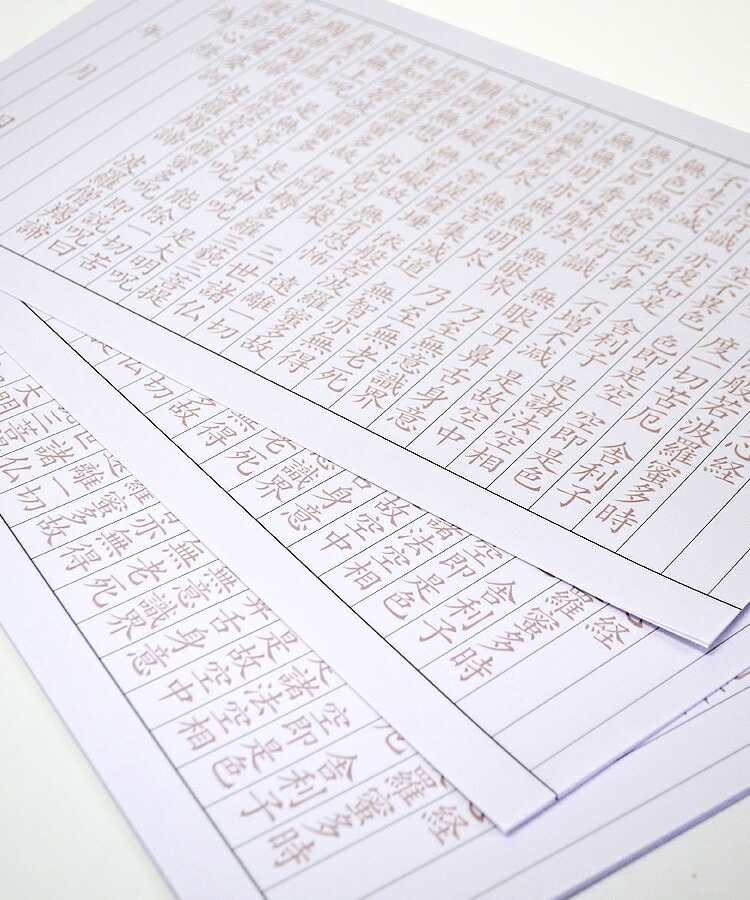 心経
般若波羅蜜多時
空 度一切苦厄 舎利子
異空 空不異色 色即是空 空即是色
行識 亦復如是 舎利子 是諸法空相
不生不滅 不垢不浄 不増不減 是故空中
無色無受想行識 無眼耳鼻舌身意
無色声香味触法 無眼界 乃至無意識界
無無明 亦無無明尽 乃至無老死
亦無老死尽 無苦集滅道 無智亦無得
以無所得故 菩提薩埵 依般若波羅蜜多故
心無罣礙 無罣礙故 無有恐怖 遠離一切
顛倒夢想 究竟涅槃 三世諸仏
依般若波羅蜜多故 得阿耨多羅三藐三菩提
故知般若波羅蜜多 是大神呪 是大明呪
是無上呪 是無等等呪 能除一切苦
真実不虚 故説般若波羅蜜多呪 即説呪曰
羯諦羯諦 波羅羯諦 波羅僧羯諦
菩提薩婆訶
般若心経
為
年 月 日
経
蜜多時
舎利子
空即是色
諸法空相
故空中
身意
識界
老死
無得
多故
一切
仏
経
羅蜜多時
舎利子
空即是色
是諸法空相
是故空中
舌身意
無意識界
無老死
亦無得
羅蜜多故
離一切
諸仏
三菩提
大明呪